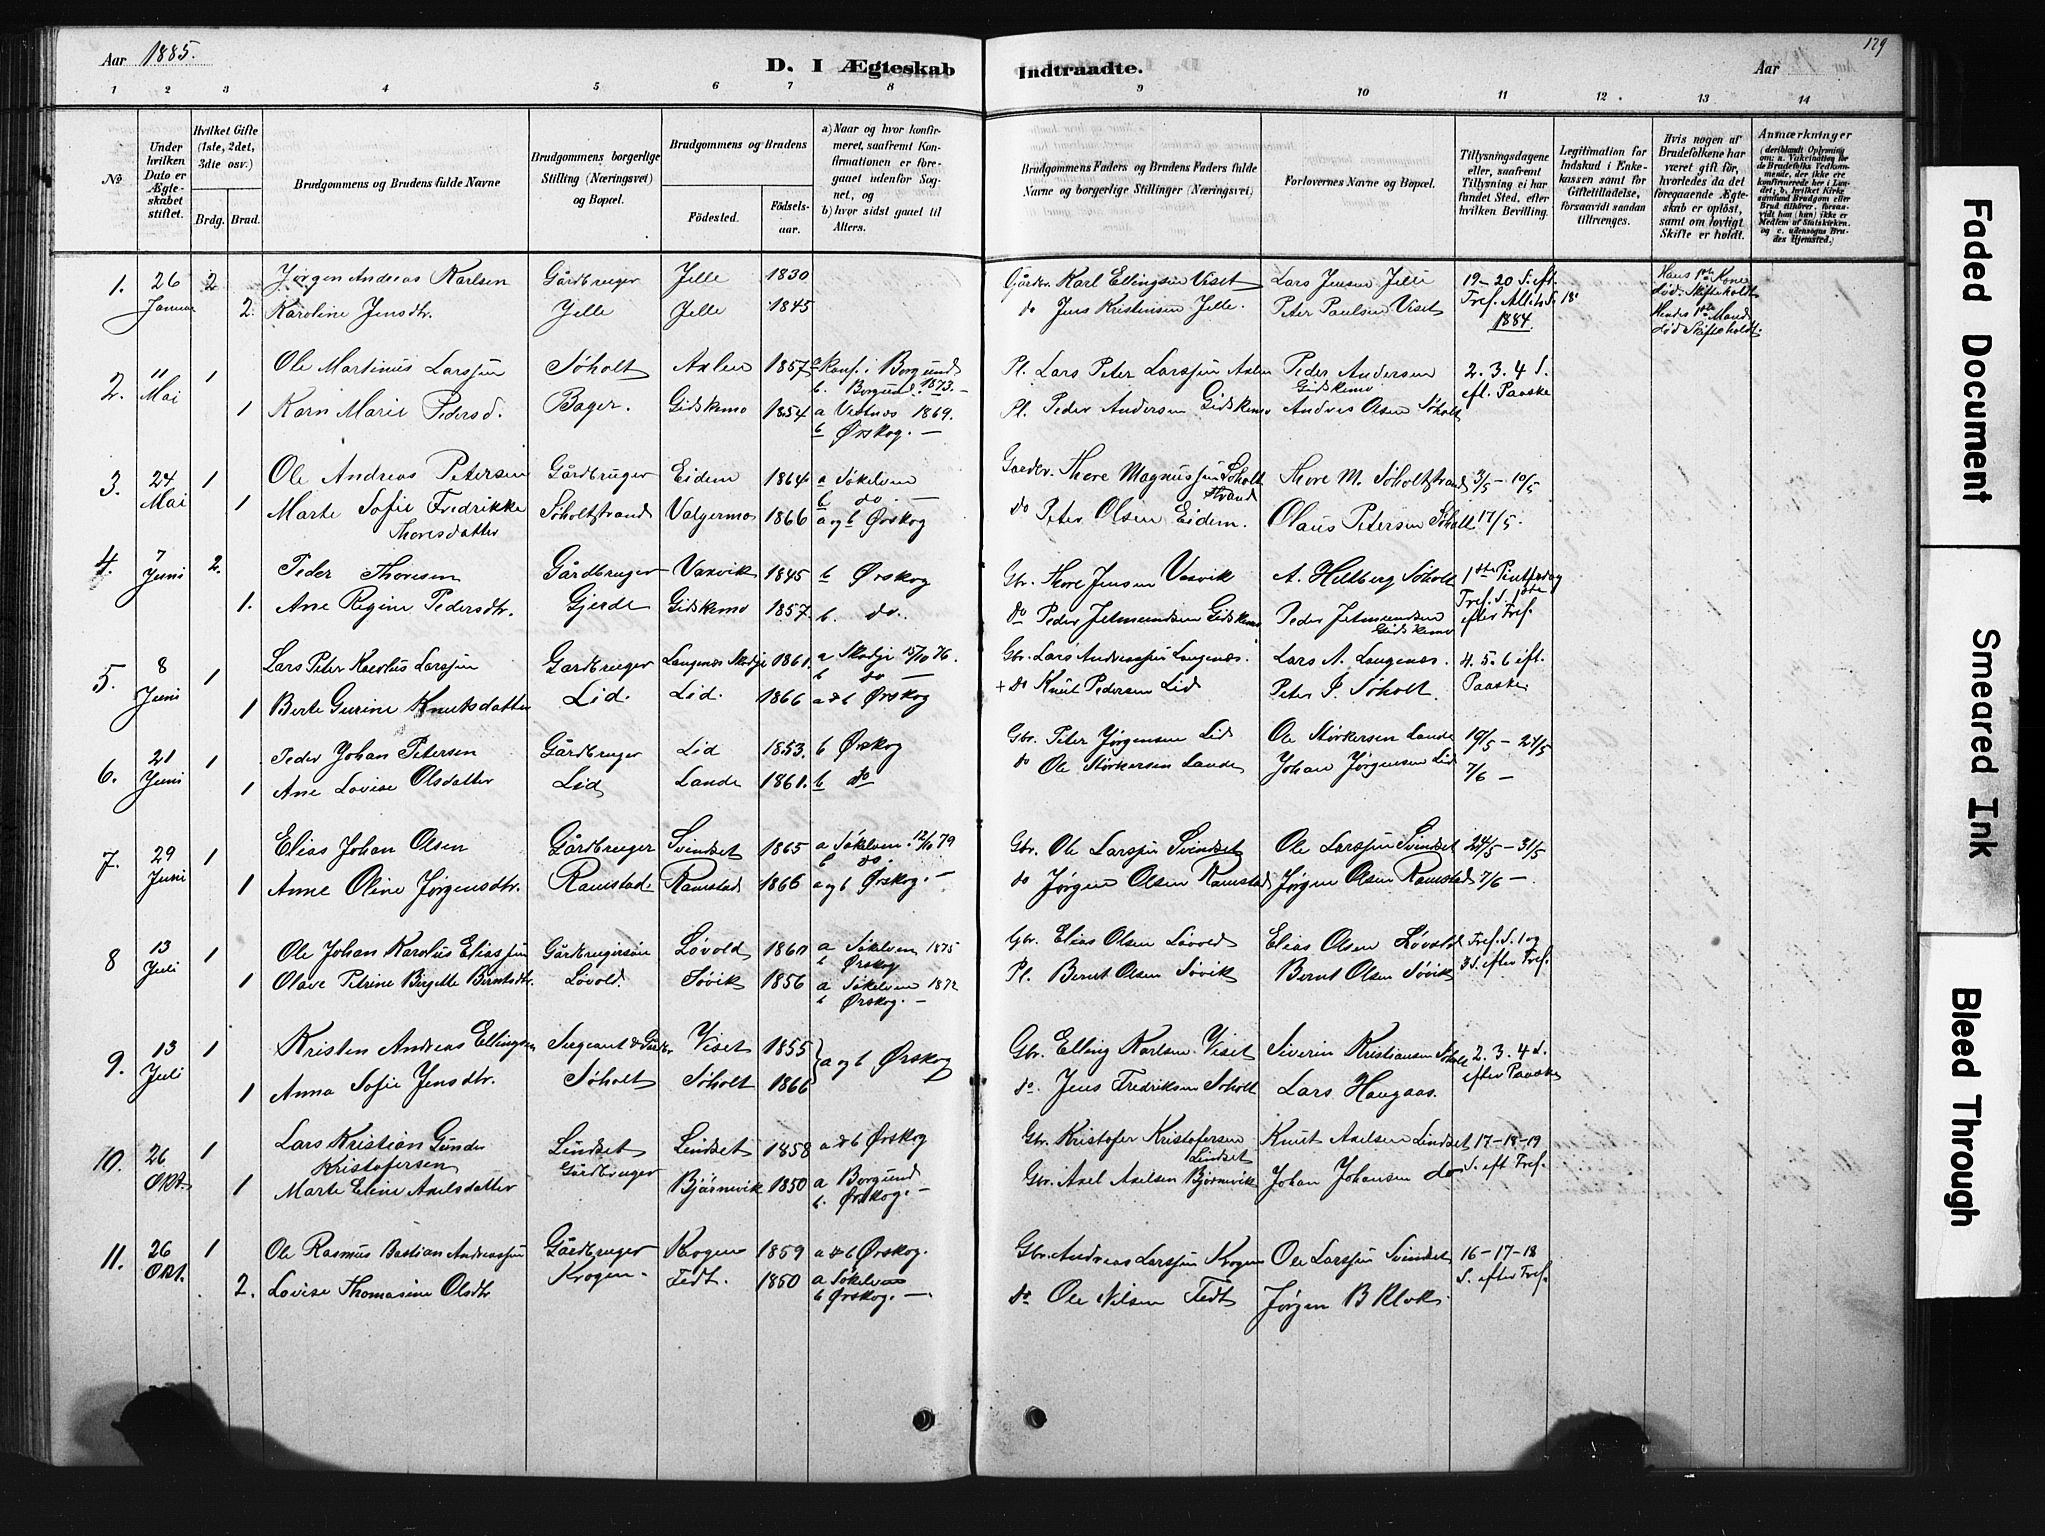 Aar 1885.
D. I Ægteskab Indtraadte.
Aar
129
1 2 3 4 5 6 7 8 9 10 11 12 13 14
No
Under hvilken Dato er Ægteskabet stiftet.
Hvilket Gifte (1ste, 2det, 3die osv.)
Brdg. Brud.
Brudgommens og Brudens fulde Navne
Brudgommens borgerlige Stilling (Næringsvei) og Bopæl.
Brudgommens og Brudens
Fødested. Fødselsaar.
a) Naar og hvor konfirmeret, saafremt Konfirmationen er foregaaet udenfor Sognet, og
b) hvor sidst gaaet til Alters.
Brudgommens Faders og Brudens Faders fulde Navne og borgerlige Stillinger (Næringsvei)
Forlovernes Navne og Bopæl.
Tillysningsdagene eller, saafremt Tillysning ei har fundet Sted, efter hvilken Bevilling.
Legitimation for Indskud i Enkekassen samt for Giftetilladelse, forsaavidt saadan tiltrænges.
Hvis nogen af Brudefolkene har været gift før, hvorledes da det foregaaende Ægteskab er opløst, samt om lovligt Skifte er holdt.
Anmærkninger
1. 26 Januar 2 Jørgen Andreas Karlsen Gårdbruger Jelle 1830 Gårdbr. Karl Ellingsen Viset Lars Jensen Jelle 19-20 S. eft. Hans 1ste Kone død. Skifte holdt
2. Karoline Jensdtr. Jelle Jelle 1845 do Jens Kristensen Jelle. Peter Paulsen Viset Tref. 1884. Hendes 1ste Mand død Skifte holdt.
2. 11 Mai 1 Ole Martinus Larssen Søholt Axlen 1857 a Konf. i Borgund 1873. b. Borgund. Pl. Lars Peter Larssen Axlen Peder Andersen Gidskemo 2. 3. 4 S. eft. Paaske
1 Karn Marie Pedersd. Bager. Gidskemo 1854 a Vestnes 1869. b Ørskog. — Pl. Peder Andersen Gidskemo Andreas Olsen Søholt
3. 24 Mai 1 Ole Andreas Petersen Gårdbruger Eidem 1864 a Søkelven b do. — Gaardbr. Thore Magnussen Søholt Strand Thore M. Søholtstrand 3/5 - 10/5
1 Marte Sofie Fredrikke Thoresdatter Søholtstrand Valgermo 1866 a og b Ørskog do Peter Olsen Eidem. Olaus Petersen Søholt 17/5.
4. 7 Juni 2. Peder Thoresen Gårdbruger Vaxvik 1845 b Ørskog Gbr. Thore Jensen Vaxvik A. Hellberg Søholt 1ste Pintsedag
1. Ane Regine Pedersdtr. Gjerde Gidskemo 1857. b. do. do Peder Jetmundsen Gidskemo Peder Jetmundsen Gidskemo Tref. S. 1ste efter Tref.
5. 8 Juni 1 Lars Peter Karolus Larssen Gardbruger Langenæs Skodje 1861. a Skodje 15/10 76. b do — Gbr. Lars Andreassen Langenæs. Lars A. Langenæs. 4. 5. 6 eft. Paaske
1 Berte Gurine Knutsdatter Lid. Lid. 1866 a & b Ørskog + do Knut Pedersen Lid Peter J. Søholt.
6. 21 Juni 1 Peder Johan Petersen Gårdbruger Lid 1853. b Ørskog Gbr. Peter Jørgensen Lid Ole Størkersen Lande 19/5 - 24/5
1 Ane Lovise Olsdatter Lid Lande 1861. b do do Ole Størkersen Lande Johan Jørgensen Lid 7/6 —
7. 29 Juni 1 Elias Johan Olsen Gårdbruger Svindset 1865 a Søkelven. 12/10 79 b do. Gbr. Ole Larssen Svindset Ole Larssen Svindset 24/5 - 31/5
1 Anne Oline Jørgensdtr. Ramstad. Ramstad 1866 a og b Ørskog. — do Jørgen Olsen Ramstad Jørgen Olsen Ramstad 7/6 —
8 13 Juli 1 Ole Johan Karolus Eliassen Gårdbrugersøn Løvold 1860 a Søkelven 1875 b Ørskog Gbr. Elias Olsen Løvold Elias Olsen Løvold Tref. S. 1 og
1 Olave Petrine Birgitte Berntsdtr. Løvold. Søvik 1856 a Søkelven 1872 b Ørskog. — Pl. Bernt Olsen Søvik Bernt Olsen Søvik 3 S. efter Tref.
9. 13 Juli 1 Kristen Andreas Ellingsen Sergeant & Gårdbr. Viset 1855 a og b Ørskog Gbr. Elling Karlsen Viset Siverin Kristiansen Søholt 2. 3. 4 S. efter Paaske
1 Anna Sofie Jensdtr. Søholt Søholt 1866 do. Jens Fredriksen Søholt Lars Haugaas.
10. 26 Okt. 1 Lars Kristian Gunder Kristofersen Lindset Gårdbruger Lindset 1858 a & b Ørskog Gbr. Kristofer Kristofersen Lindset Knut Axelsen Lindset 17-18-19
1 Marte Eline Axelsdatter Bjørnevik 1850 a Borgund b. Ørskog. — Gbr. Axel Axelsen Bjørnevik Johan Johansen do S. eft Tref.
11. 26 Okt. 1 Ole Rasmus Bastian Andreassen Gårdbruger Krogen 1859 a & b Ørskog. Gbr. Andreas Larssen Krogen Ole Larssen Svindset 16-17-18
2. Lovise Thomasine Olsdtr Krogen. Fedt. 1850 a Søkelven b Ørskog. — do Ole Nilsen Fedt Jørgen B Klok S. efter Tref.
Faded Document
Smeared Ink
Bleed Through